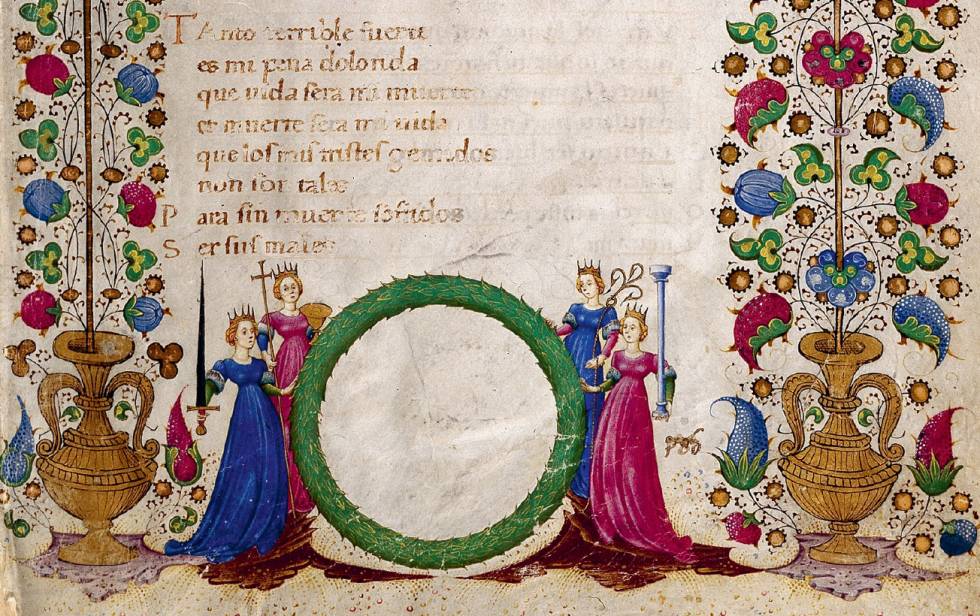 TAnto terrible fuerte
es mi pena dolorida
que uida sera mi muerte
et muerte sera mi uida
que los mis tristes gemidos
non son tales
Para sin muerte sofridos
Ser sus males